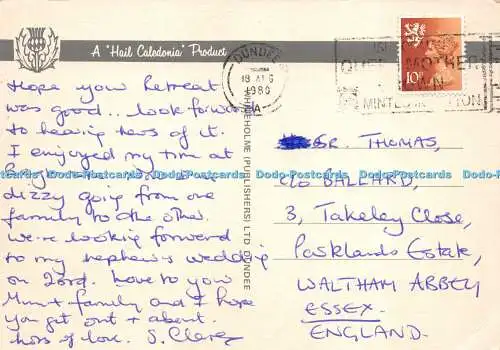 A "Hail Caledonia" Product
DUNDEE
18 AUG
1980
A
QUEEN MOTHER
10P
WHITEHOLME (PUBLISHERS) LTD DUNDEE
Hope your Retreat
was good.. look forward
to hearing hers of it.
I enjoyed my time at
dizzy going from one
family to the other.
We're looking forward
to my nephew's wedding
on 23rd. Love to you
Mum + family and I hope
you get out + about.
hers of love. S. Clare
SR. THOMAS,
C/O BALLARD,
3, Takeley Close,
Parklands Estate,
WALTHAM ABBEY
ESSEX.
ENGLAND.
Dodo-Postcards Dodo-Postcards Dodo-Postcards Dodo-Postcards Dodo-Postcards